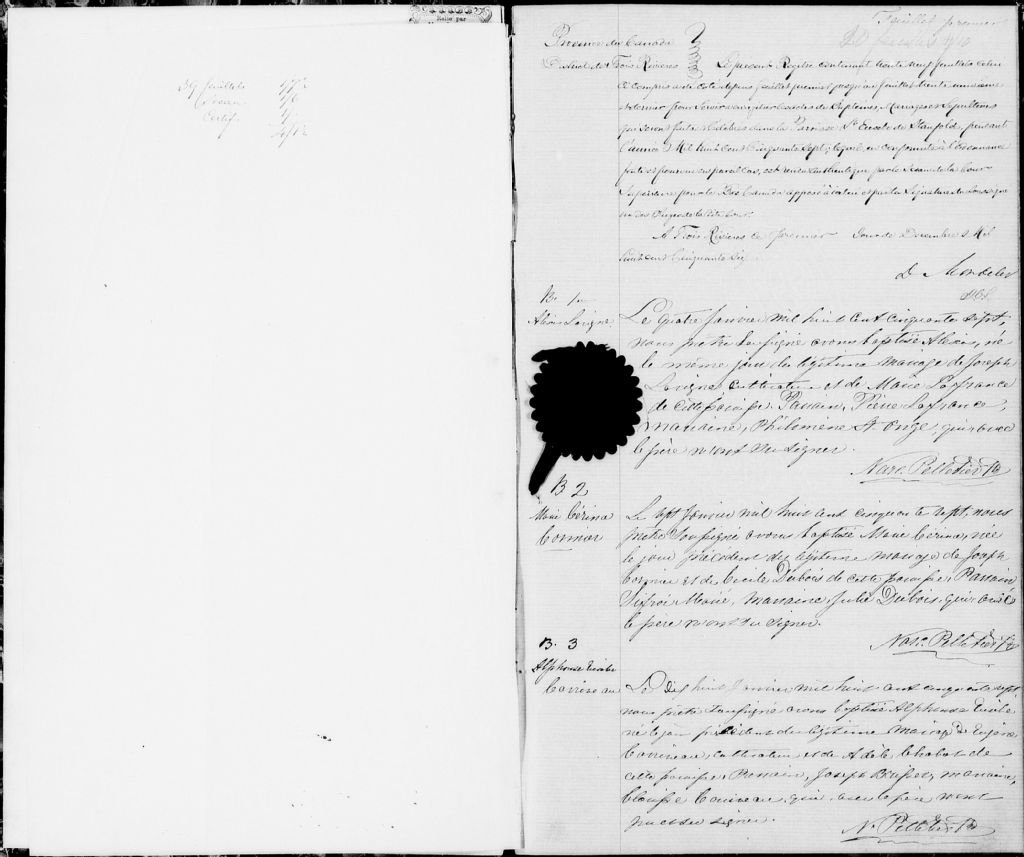 Relié par
39 feuillets
Certif.
Feuillet premier
Province du Canada
District des Trois Rivières Le présent Registre contenant trente neuf feuillets celui
ci compris a été coté depuis feuillet premier jusqu'au feuillet trente neuvième
et dernier pour servir à enregistrer les actes de Baptêmes, Mariages et Sépultures
qui seront faits et célébrés dans la Paroisse St Eusèbe de Stanfold, pendant
l'année Mil huit cent cinquante Sept; lequel en conformité à l'Ordonnance
faite et pourvue en pareil cas, est rendu authentique par le Sceau de la Cour
Supérieure pour le Bas Canada apposé à icelui et par la Signature du Soussigné
un des Juges de la dite Cour.
A Trois Rivières ce premier Jour de Décembre Mil
huit cent Cinquante Six
D. Mondelet
JCS.
B. 1re
Alexis Lavigne
Le quatre Janvier mil huit cent cinquante sept,
nous prêtre Soussigné avons baptisé Alexis, né
le même jour du légitime mariage de Joseph
Lavigne Cultivateur et de Marie Lafrance
de cette paroisse. Parrain, Pierre Lafrance,
marraine, Philomène St. Onge, qui avec
le père n'ont su signer.
Narc. Pelletier Ptre
B 2
Marie Cérina
Cormier
Le sept Janvier mil huit cent cinquante sept, nous
prêtre Soussigné avons baptisé Marie Cérina, née
le jour précédent du légitime mariage de Joseph
Cormier et de Cécile Dubois de cette paroisse. Parrain
marraine, Julie Dubois, qui avec
le père n'ont su signer.
Narc. Pelletier Ptre
B. 3
Alphonse
Le dix huit Janvier mil huit cent cinquante sept
nous prêtre Soussigné avons baptisé Alphonse
né le jour précédent du légitime mariage de
cultivateur et de Adèle Chabot de
cette paroisse. Parrain, Joseph marraine,
qui avec le père n'ont
pu et su signer.
N. Pelletier Ptre